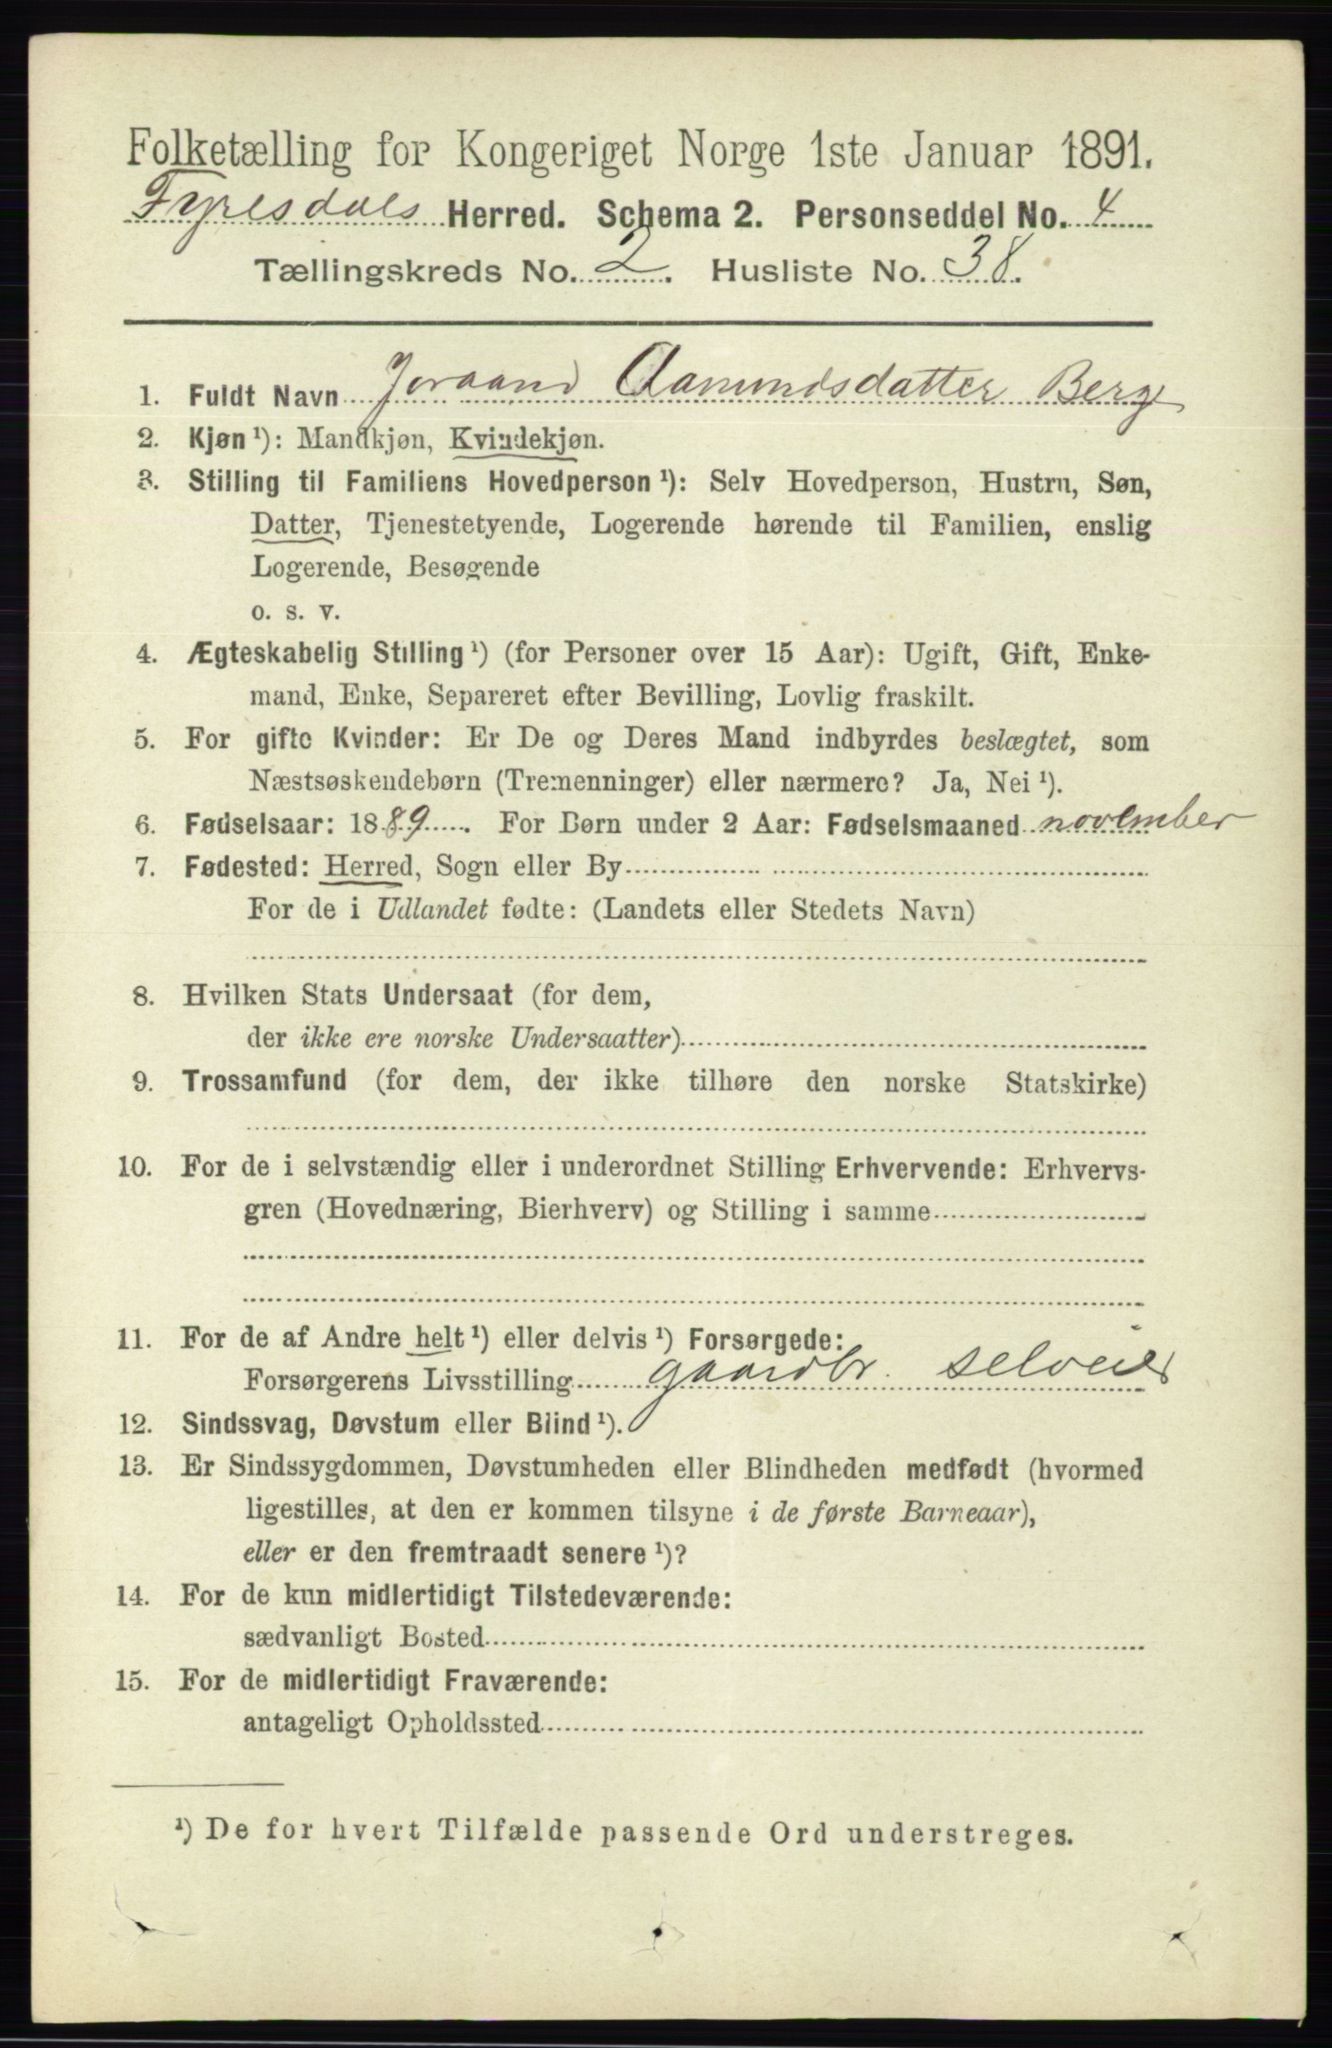 Folketælling for Kongeriget Norge 1ste Januar 1891.
Fyresdals Herred. Schema 2. Personseddel No. 4
Tællingskreds No. 2. Husliste No. 38.
1. Fuldt Navn Joraand Aamundsdatter Berge
2. Kjøn ¹): Mandkjøn, Kvindekjøn.
3. Stilling til Familiens Hovedperson ¹): Selv Hovedperson, Hustru, Søn,
Datter, Tjenestetyende, Logerende hørende til Familien, enslig
Logerende, Besøgende
o. s. v.
4. Ægteskabelig Stilling ¹) (for Personer over 15 Aar): Ugift, Gift, Enke-
mand, Enke, Separeret efter Bevilling, Lovlig fraskilt.
5. For gifte Kvinder: Er De og Deres Mand indbyrdes beslægtet, som
Næstsøskendebørn (Tremenninger) eller nærmere? Ja, Nei ¹).
6. Fødselsaar: 1889. For Børn under 2 Aar: Fødselsmaaned november
7. Fødested: Herred, Sogn eller By
For de i Udlandet fødte: (Landets eller Stedets Navn)
8. Hvilken Stats Undersaat (for dem,
der ikke ere norske Undersaatter)
9. Trossamfund (for dem, der ikke tilhøre den norske Statskirke)
10. For de i selvstændig eller i underordnet Stilling Erhvervende: Erhvervs-
gren (Hovednæring, Bierhverv) og Stilling i samme
11. For de af Andre helt ¹) eller delvis ¹) Forsørgede:
Forsørgerens Livsstilling gaardbr. selveier
12. Sindssvag, Døvstum eller Blind ¹).
13. Er Sindssygdommen, Døvstumheden eller Blindheden medfødt (hvormed
ligestilles, at den er kommen tilsyne i de første Barneaar),
eller er den fremtraadt senere ¹)?
14. For de kun midlertidigt Tilstedeværende:
sædvanligt Bosted
15. For de midlertidigt Fraværende:
antageligt Opholdssted
¹) De for hvert Tilfælde passende Ord understreges.